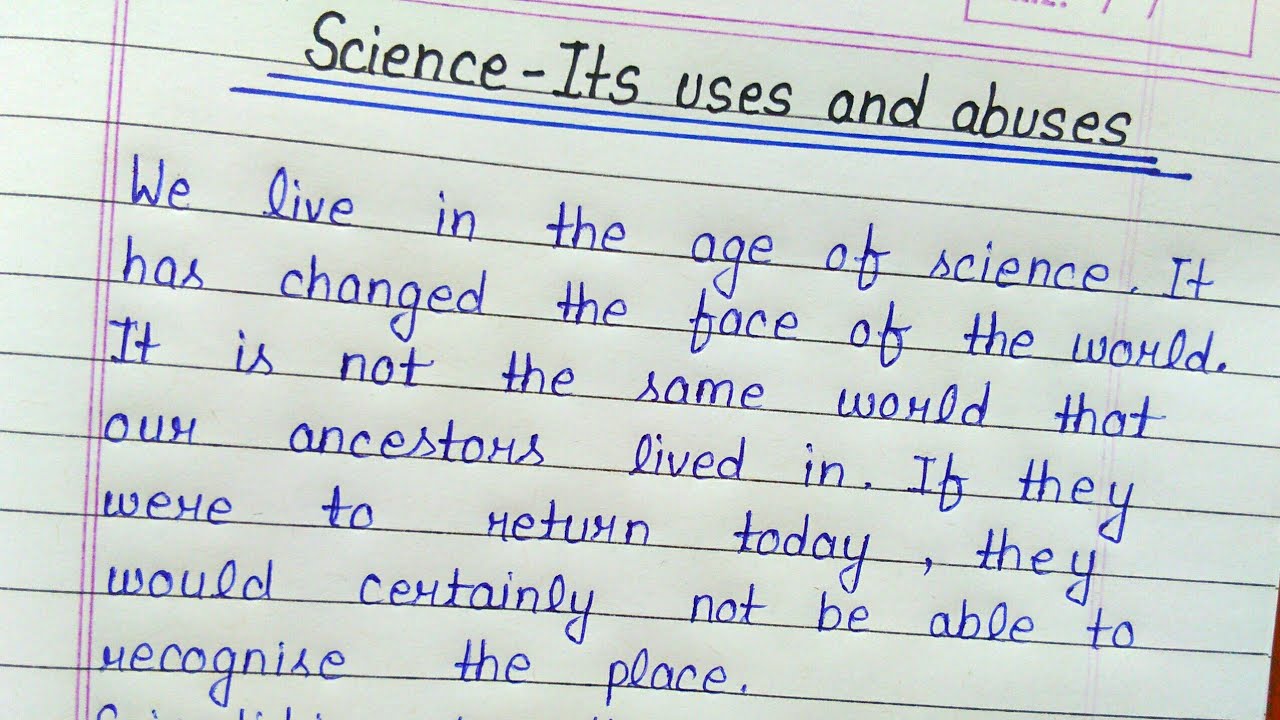 Science - Its uses and abuses
We live in the age of science. It
has changed the face of the world.
It is not the same world that
our ancestors lived in. If they
were to return today, they
would certainly not be able to
recognise the place.